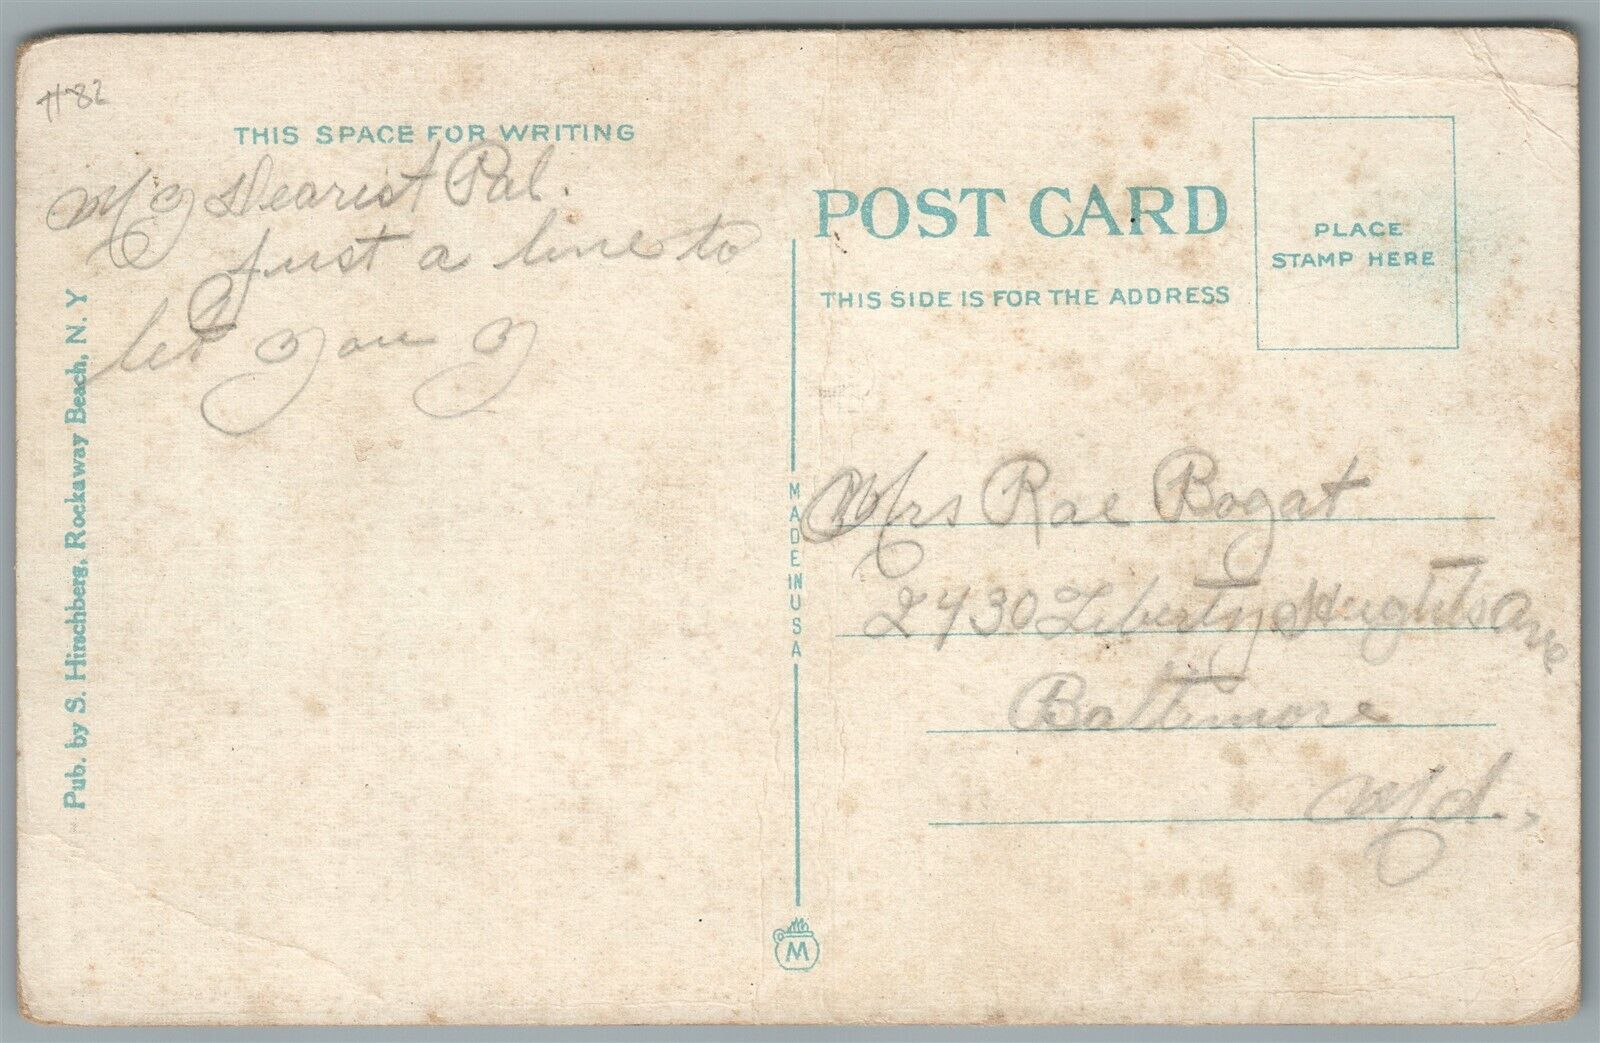 #82
THIS SPACE FOR WRITING
My Dearest Pal.
Just a line to
let you y
Pub. by S. Hirschberg, Rockaway Beach, N. Y
MADE IN USA
M
POST CARD
THIS SIDE IS FOR THE ADDRESS
PLACE
STAMP HERE
Mrs Rae Bogat
2430 Liberty Heights Ave
Baltimore
Md.,